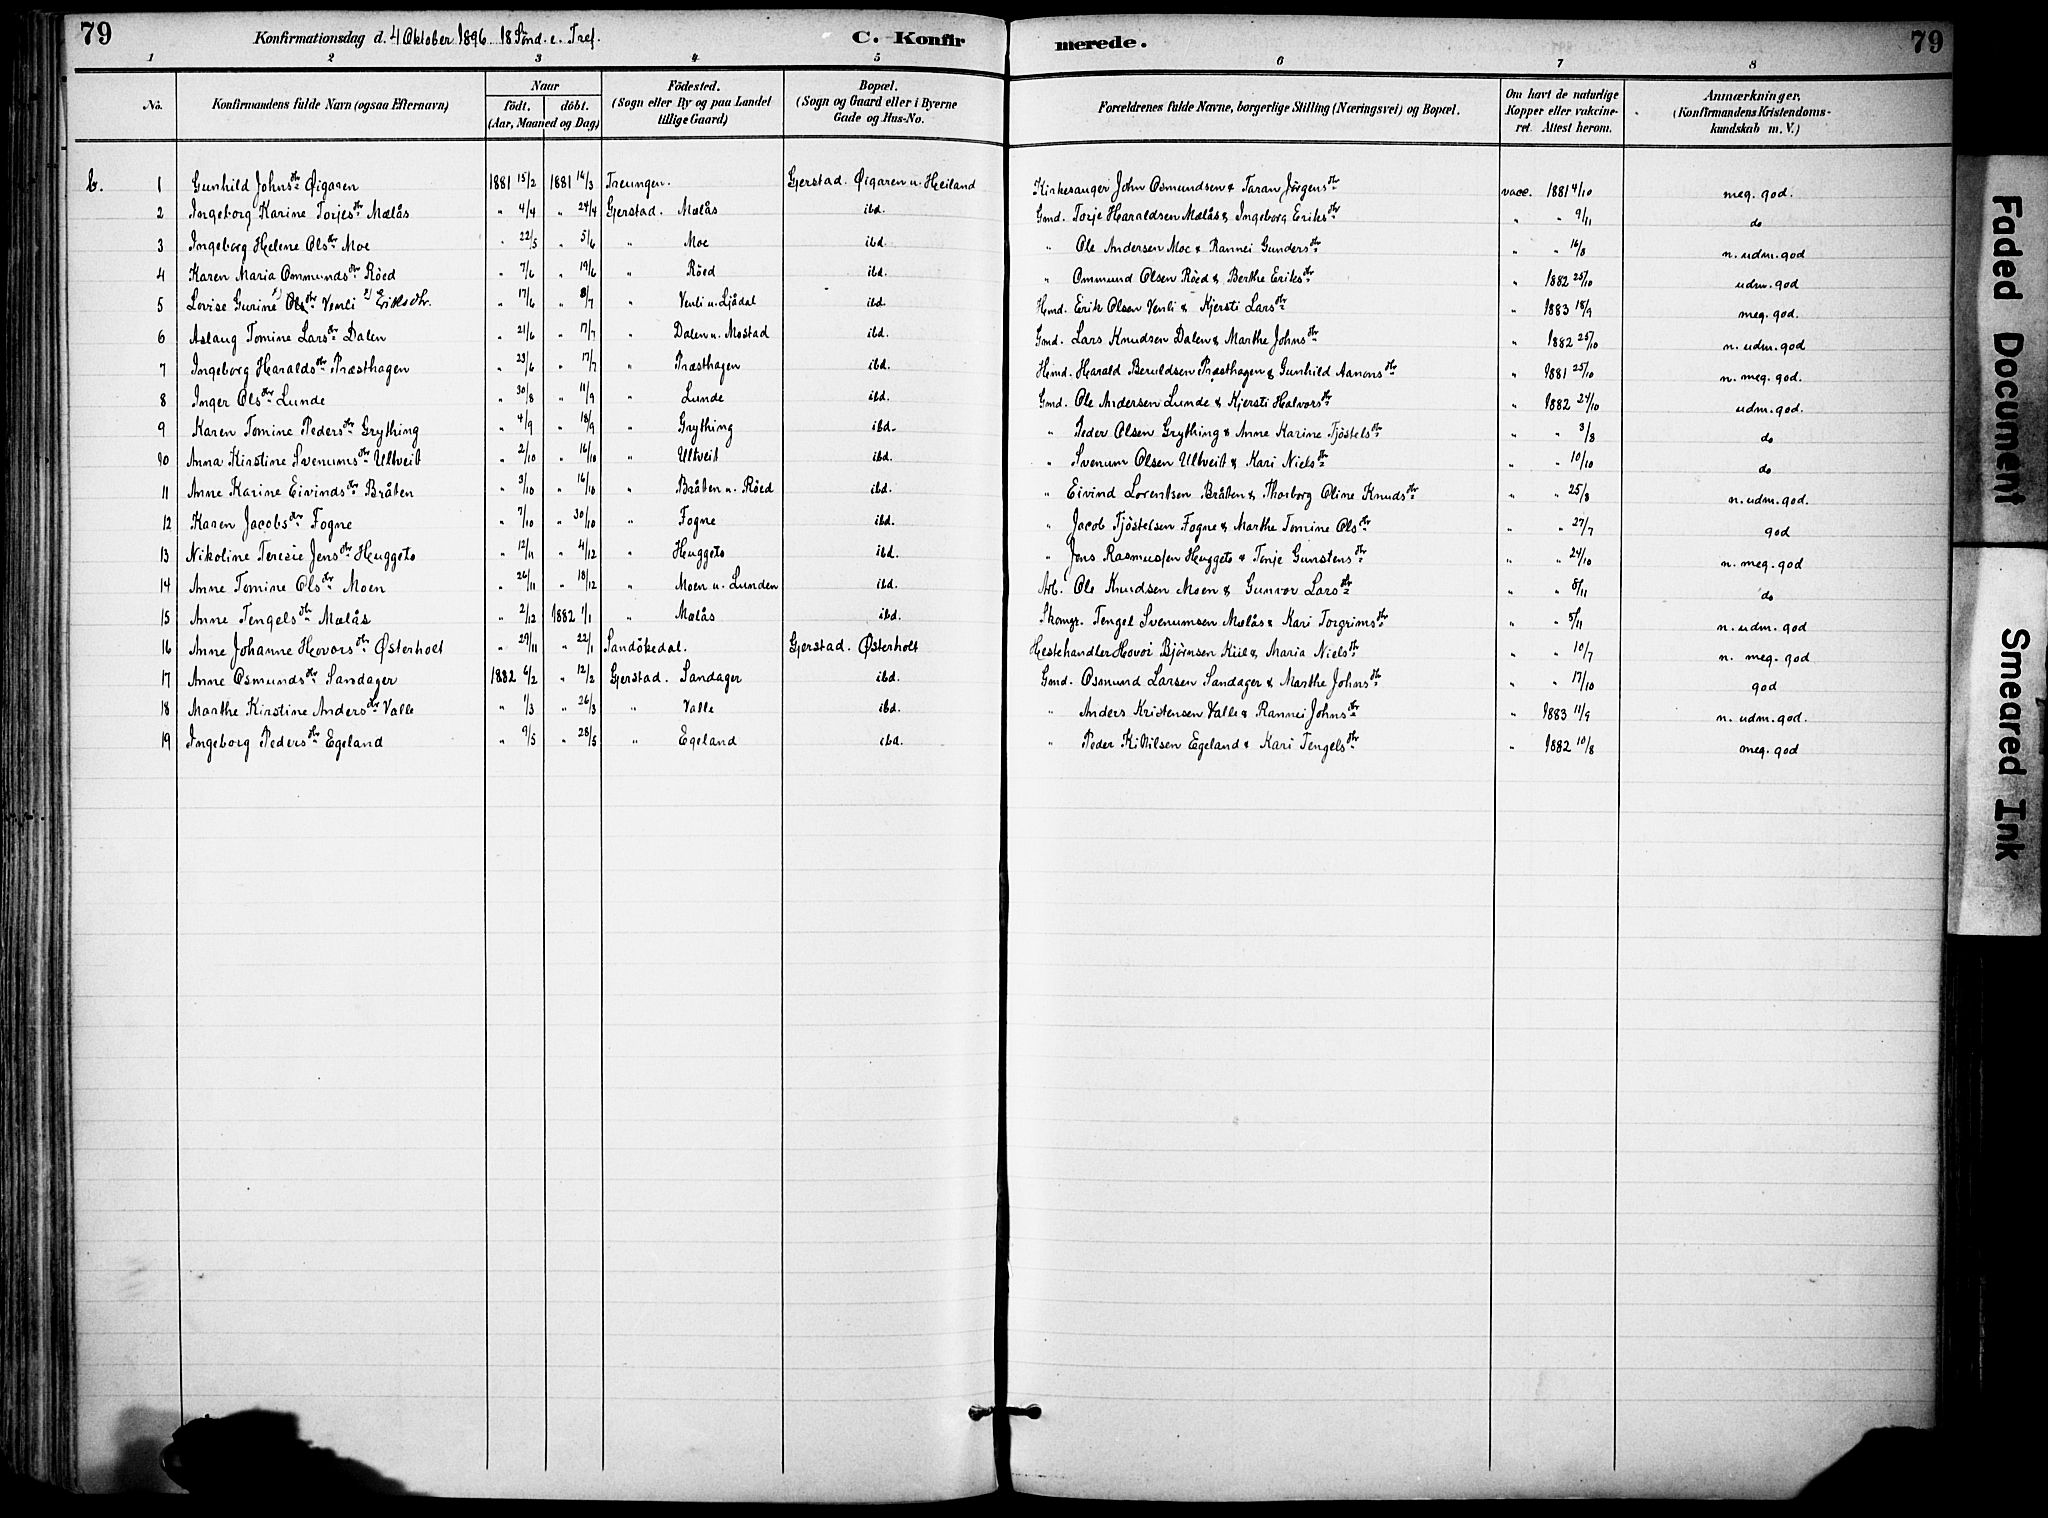 79 Konfirmationsdag d. 4 Oktober 1896. 18 Sönd. e. Tref. C. Konfir merede. 79
1 2 3 4 5 6 7 8
No. Konfirmandens fulde Navn (ogsaa Efternavn) Naar født. døbt. (Aar, Maaned og Dag) Fødested. (Sogn eller By og paa Landet tillige Gaard) Bopæl. (Sogn og Gaard eller i Byerne Gade og Hus-No. Forældrenes fulde Navne, borgerlige Stilling (Næringsvei) og Bopæl. Om havt de naturlige Kopper eller vakcineret. Attest herom. Anmærkninger, (Konfirmandens Kristendomskundskab m. V.)
b. 1 Gunhild Johnsdtr Øigaren 1881 15/2 1881 16/3 Treungen. Gjerstad. Øigaren u. Heiland Kirkesanger John Osmundsen & Taran Jörgensdtr vacc. 1881 4/10 meg. god.
2 Ingeborg Karine Torjesdtr Mælås " 4/4 " 24/4 Gjerstad. Mælås ibd. Gmd. Torje Haraldsen Mælås & Ingeborg Eriksdtr " " 9/11 do
3 Ingeborg Helene Olsdtr Moe " 22/5 " 5/6 " Moe ibd. " Ole Andersen Moe & Rannei Gundersdtr " " 16/8 n. udm. god
4 Karen Maria Ommundsdtr Röed " 7/6 " 19/6 " Röed ibd. " Ommund Olsen Röed & Berthe Eriksdtr " 1882 25/10 udm. god
5 Lovise Gurine Olsdtr Venli Eriksdtr. " 17/6 " 8/7 " Venli u. Ljådal ibd. Hmd. Erik Olsen Venli & Kjersti Larsdtr " 1883 18/9 meg. god.
6 Aslaug Tomine Larsdtr Dalen " 21/6 " 17/7 " Dalen u. Mostad ibd. Gmd. Lars Knudsen Dalen & Marthe Johnsdtr " 1882 25/10 n. udm. god
7 Ingeborg Haraldsdtr Præsthagen " 23/6 " 17/7 " Præsthagen ibd. Hmd. Harald Beruldsen Præsthagen & Gunhild Aanonsdtr " 1881 25/10 n. meg. god.
8 Inger Olsdtr Lunde " 30/8 " 11/9 " Lunde ibd. Gmd. Ole Andersen Lunde & Kjersti Halvorsdtr " 1882 24/10 udm. god.
9 Karen Tomine Pedersdtr Grything " 4/9 " 18/9 " Grything ibd. " Peder Olsen Grything & Anne Karine Tjöstelsdtr " " 3/8 do
10 Anna Kirstine Svenumsdtr Ultveit " 2/10 " 16/10 " Ultveit ibd. " Svenum Olsen Ultveit & Kari Nielsdtr " " 10/10 do
11 Anne Karine Eivindsdtr Bråten " 3/10 " 16/10 " Bråten u. Röed ibd. " Eivind Lorentsen Bråten & Thorborg Oline Knudsdtr " " 25/8 n. udm. god.
12 Karen Jacobsdtr Fogne " 7/10 " 30/10 " Fogne ibd. " Jacob Tjöstelsen Fogne & Marthe Tomine Olsdtr " " 27/7 god
13 Nikoline Terecie Jensdtr Huggeto " 12/11 " 4/12 " Huggeto ibd. " Jens Rasmussen Huggeto & Tonje Gunstensdtr " " 24/10 n. meg. god
14 Anne Tomine Olsdtr Moen " 26/11 " 18/12 " Moen u. Lunden ibd. Arb. Ole Knudsen Moen & Gunvor Larsdtr " " 8/11 do
15 Anne Tengelsdtr Mælås " 2/12 1882 1/1 " Mælås ibd. Skomgr. Tengel Svenumsen Mælås & Kari Torgrimsdtr " " 5/11 n. udm. god
16 Anne Johanne Hovorsdtr Østerholt " 29/11 " 22/1 Sandökedal. Gjerstad. Østerholt Hestehandler Hovor Björnsen Kiil & Maria Nielsdtr " " 10/7 n. meg. god
17 Anne Osmundsdtr Sandager 1882 6/2 " 12/2 Gjerstad. Sandager ibd. Gmd. Osmund Larsen Sandager & Marthe Johnsdtr " " 17/10 god
18 Marthe Kirstine Andersdtr Valle " 1/3 " 26/3 " Valle ibd. " Anders Kristensen Valle & Rannei Johnsdtr " 1883 11/9 n. udm. god.
19 Ingeborg Pedersdtr Egeland " 9/5 " 28/5 " Egeland ibd. " Peder Kittilsen Egeland & Kari Tengelsdtr " 1882 10/8 meg. god
Faded Document
Smeared Ink